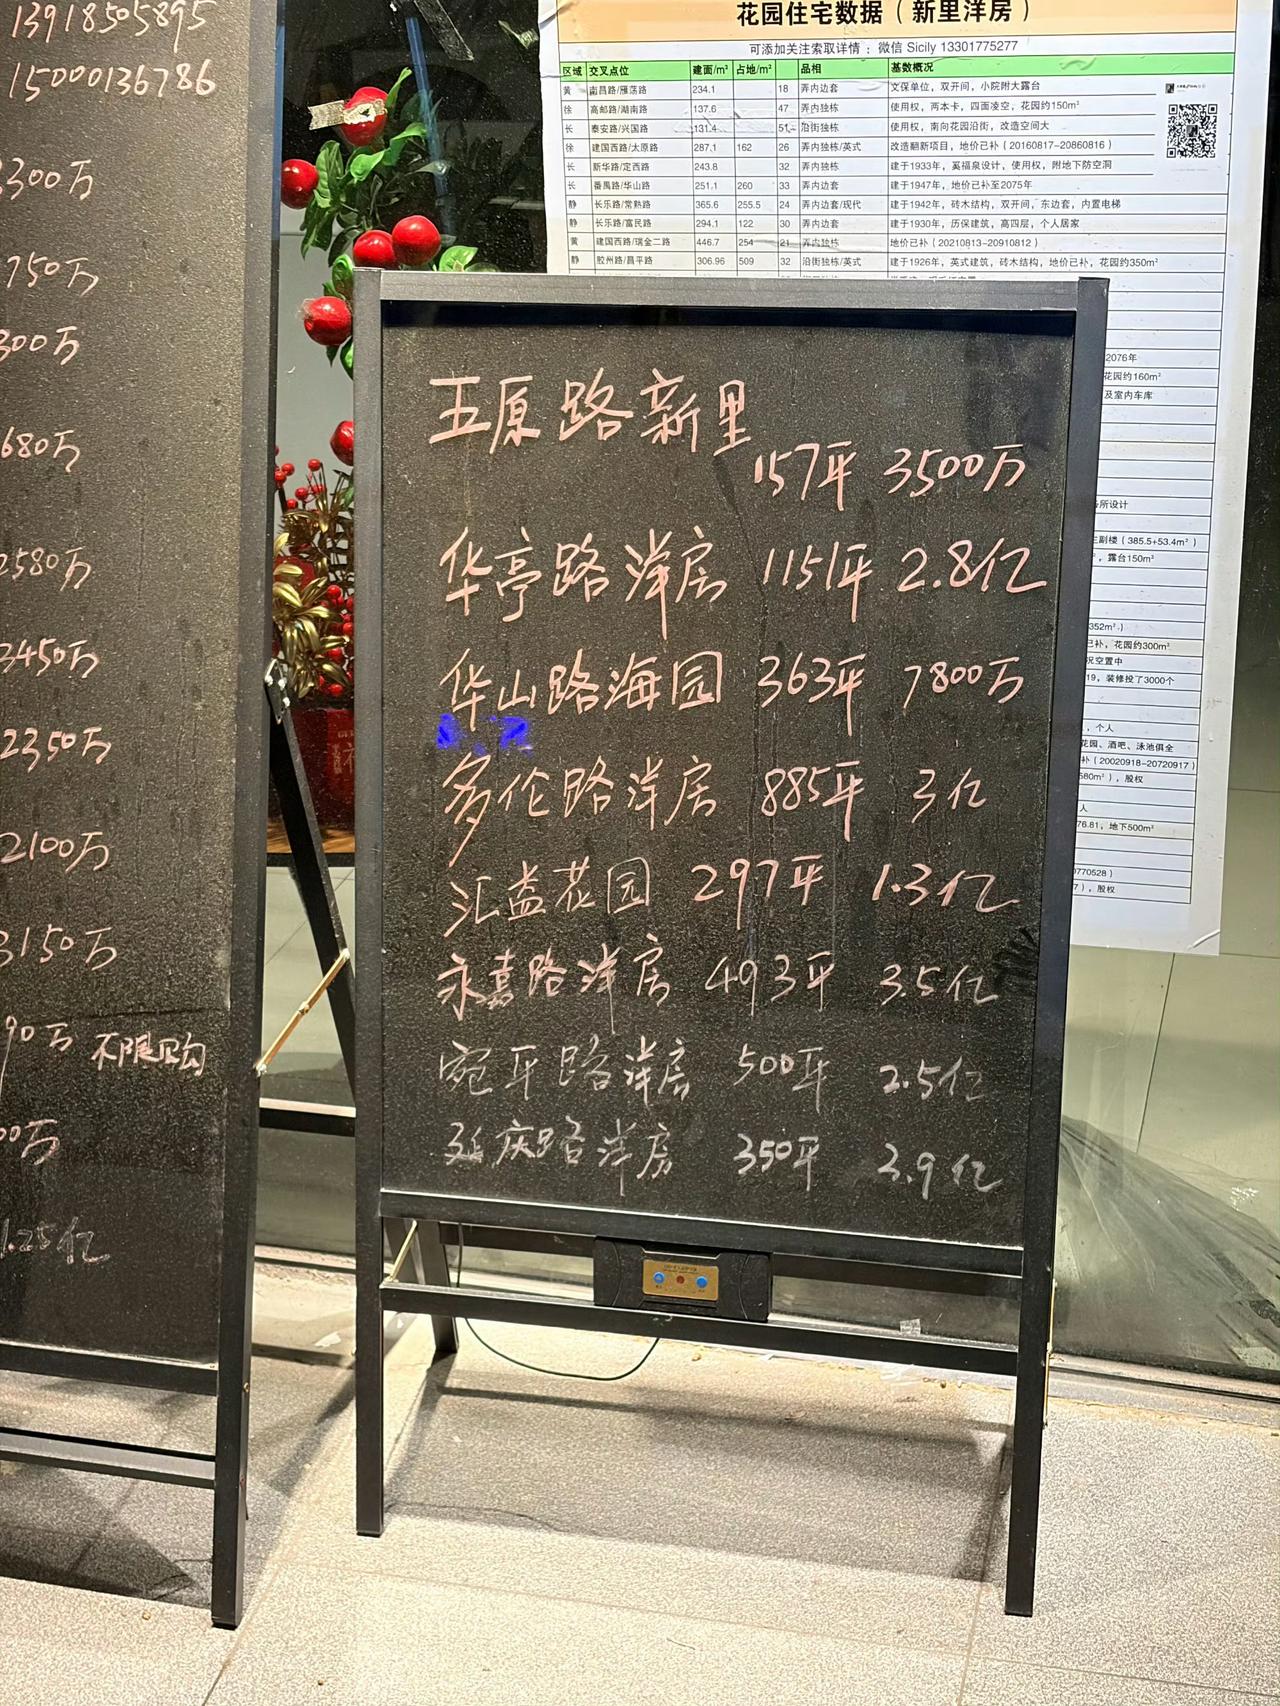 13918505895
15000136786
3300万
750万
300万
680万
2580万
3450万
2350万
2100万
3150万
90万 不限购
00万
1.25亿
花园住宅数据（新里洋房）
可添加关注索取详情：微信 Sicily 13301775277
区域 交叉点位 建面/m² 占地/m² 品相 基数概况
黄 南昌路/雁荡路 234.1 18 弄内边套 文保单位，双开间，小院附大露台
徐 高邮路/湖南路 137.6 47 弄内独栋 使用权，两本卡，四面凌空，花园约150m²
长 泰安路/兴国路 131.4 51 沿街独栋 使用权，南向花园沿街，改造空间大
徐 建国西路/太原路 287.1 162 26 弄内独栋/英式 改造翻新项目，地价已补（20160817-20860816）
长 新华路/定西路 243.8 32 弄内独栋 建于1933年，奚福泉设计，使用权，附地下防空洞
长 番禺路/华山路 251.1 260 33 弄内边套 建于1947年，地价已补至2075年
静 长乐路/常熟路 365.6 255.5 24 弄内边套/现代 建于1942年，砖木结构，双开间，东边套，内置电梯
静 长乐路/富民路 294.1 122 30 弄内边套 建于1930年，历保建筑，高四层，个人居家
黄 建国西路/瑞金二路 446.7 254 21 弄内独栋 地价已补（20210813-20910812）
静 胶州路/昌平路 306.96 509 32 沿街独栋/英式 建于1926年，英式建筑，砖木结构，地价已补，花园约350m²
2076年
花园约160m²
及室内车库
所设计
主副楼（385.5+53.4m²）
，露台150m²
352m²）
已补，花园约300m²
况空置中
19，装修投了3000个
，个人
花园、酒吧、泳池俱全
补（20020918-20720917）
580m²），股权
人
76.81，地下500m²
0770528）
7），股权
五原路新里
157平 3500万
华亭路洋房 1151平 2.8亿
华山路海园 363平 7800万
多伦路洋房 885平 3亿
汇益花园 297平 1.3亿
永嘉路洋房 493平 3.5亿
宛平路洋房 500平 2.5亿
延庆路洋房 350平 2.9亿